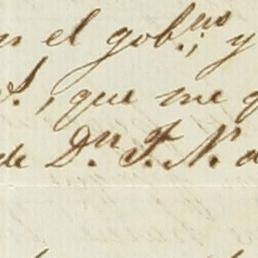 n el gob.no; y
S., que me
de Dn. F. N.